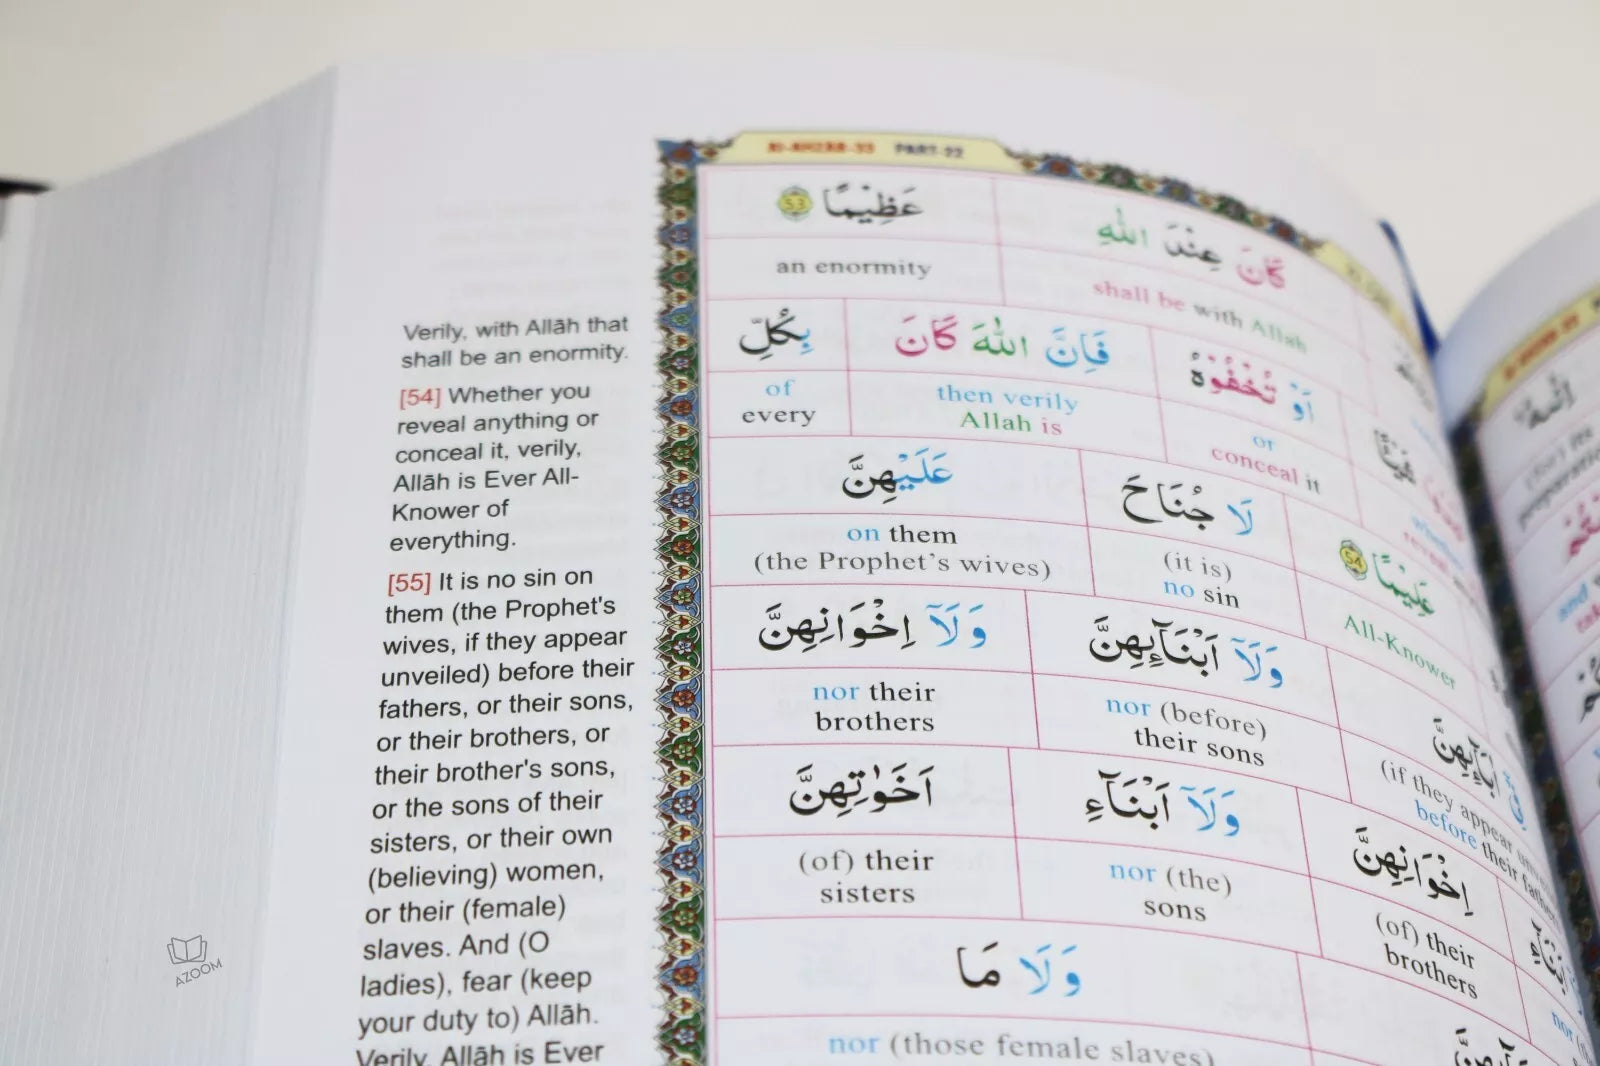 Al-AHZAB-33 PART-22
Verily, with Allāh that
shall be an enormity.
[54] Whether you
reveal anything or
conceal it, verily,
Allāh is Ever All-
Knower of
everything.
[55] It is no sin on
them (the Prophet's
wives, if they appear
unveiled) before their
fathers, or their sons,
or their brothers, or
their brother's sons,
or the sons of their
sisters, or their own
(believing) women,
or their (female)
slaves. And (O
ladies), fear (keep
your duty to) Allāh.
Verily, Allāh is Ever
كَانَ عِنْدَ اللّٰهِ عَظِيْمًا 53
shall be with Allah an enormity
اَوْ تُخْفُوْهُ فَاِنَّ اللّٰهَ كَانَ بِكُلِّ
or
conceal it
then verily
Allah is
of
every
عَلِيْمًا 54 لَا جُنَاحَ عَلَيْهِنَّ
All-Knower
(it is)
no sin
on them
(the Prophet's wives)
فِيْٓ اٰبَآئِهِنَّ وَلَآ اَبْنَآئِهِنَّ وَلَآ اِخْوَانِهِنَّ
(if they appear
before their
nor (before)
their sons
nor their
brothers
اِخْوَانِهِنَّ وَلَآ اَبْنَآءِ اَخَوٰتِهِنَّ
(of) their
brothers
nor (the)
sons
(of) their
sisters
وَلَا مَا
nor (those female slaves)
AZOOM